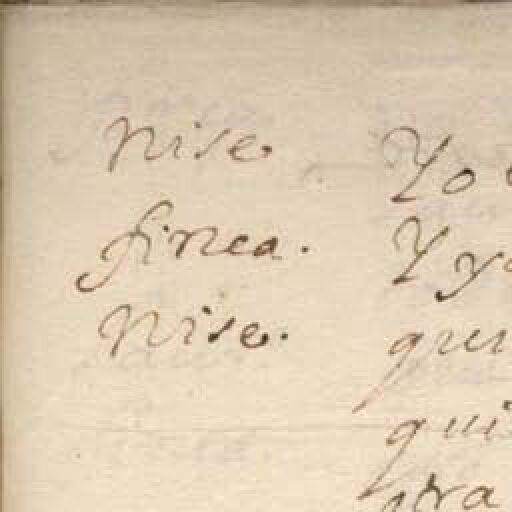 Nise. Yo
finea. Y yo
Nise.
qui
otra